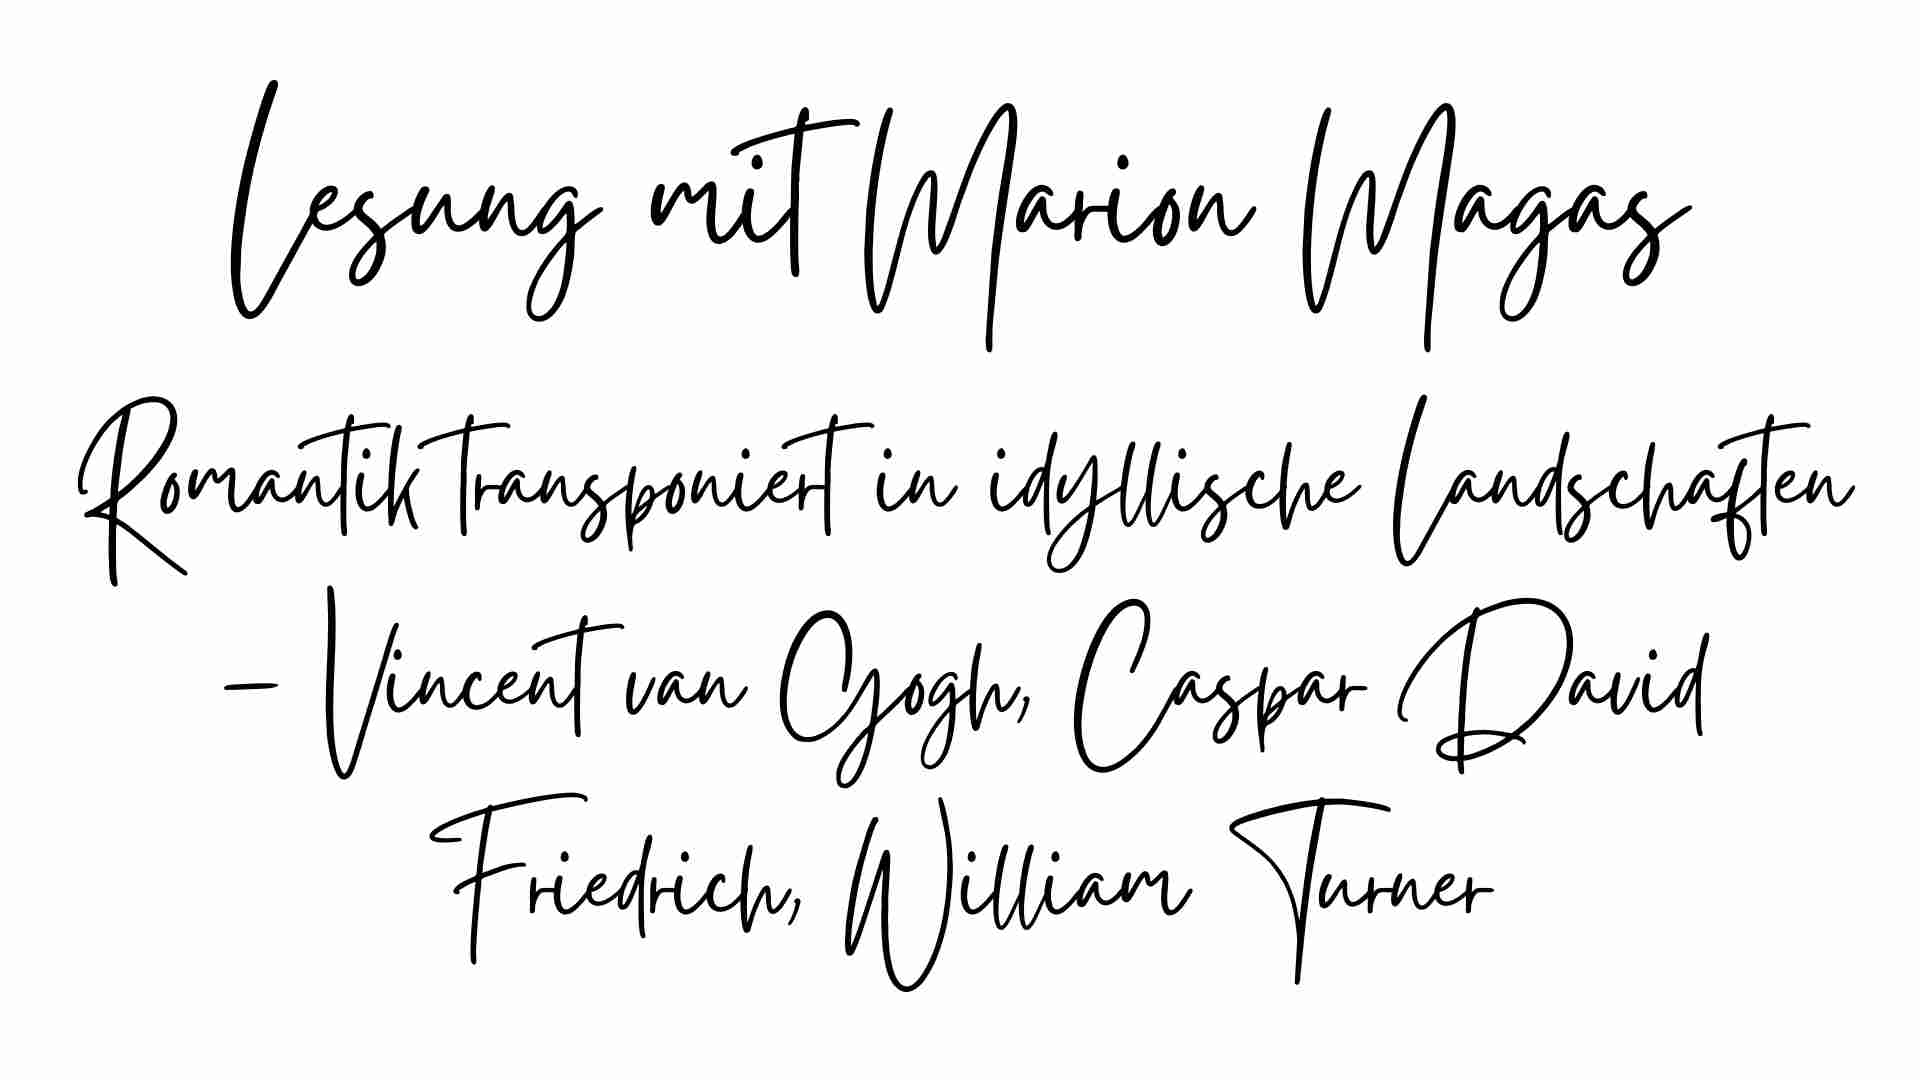 Lesung mit Marion Magas
Romantik transponiert in idyllische Landschaften
– Vincent van Gogh, Caspar David
Friedrich, William Turner